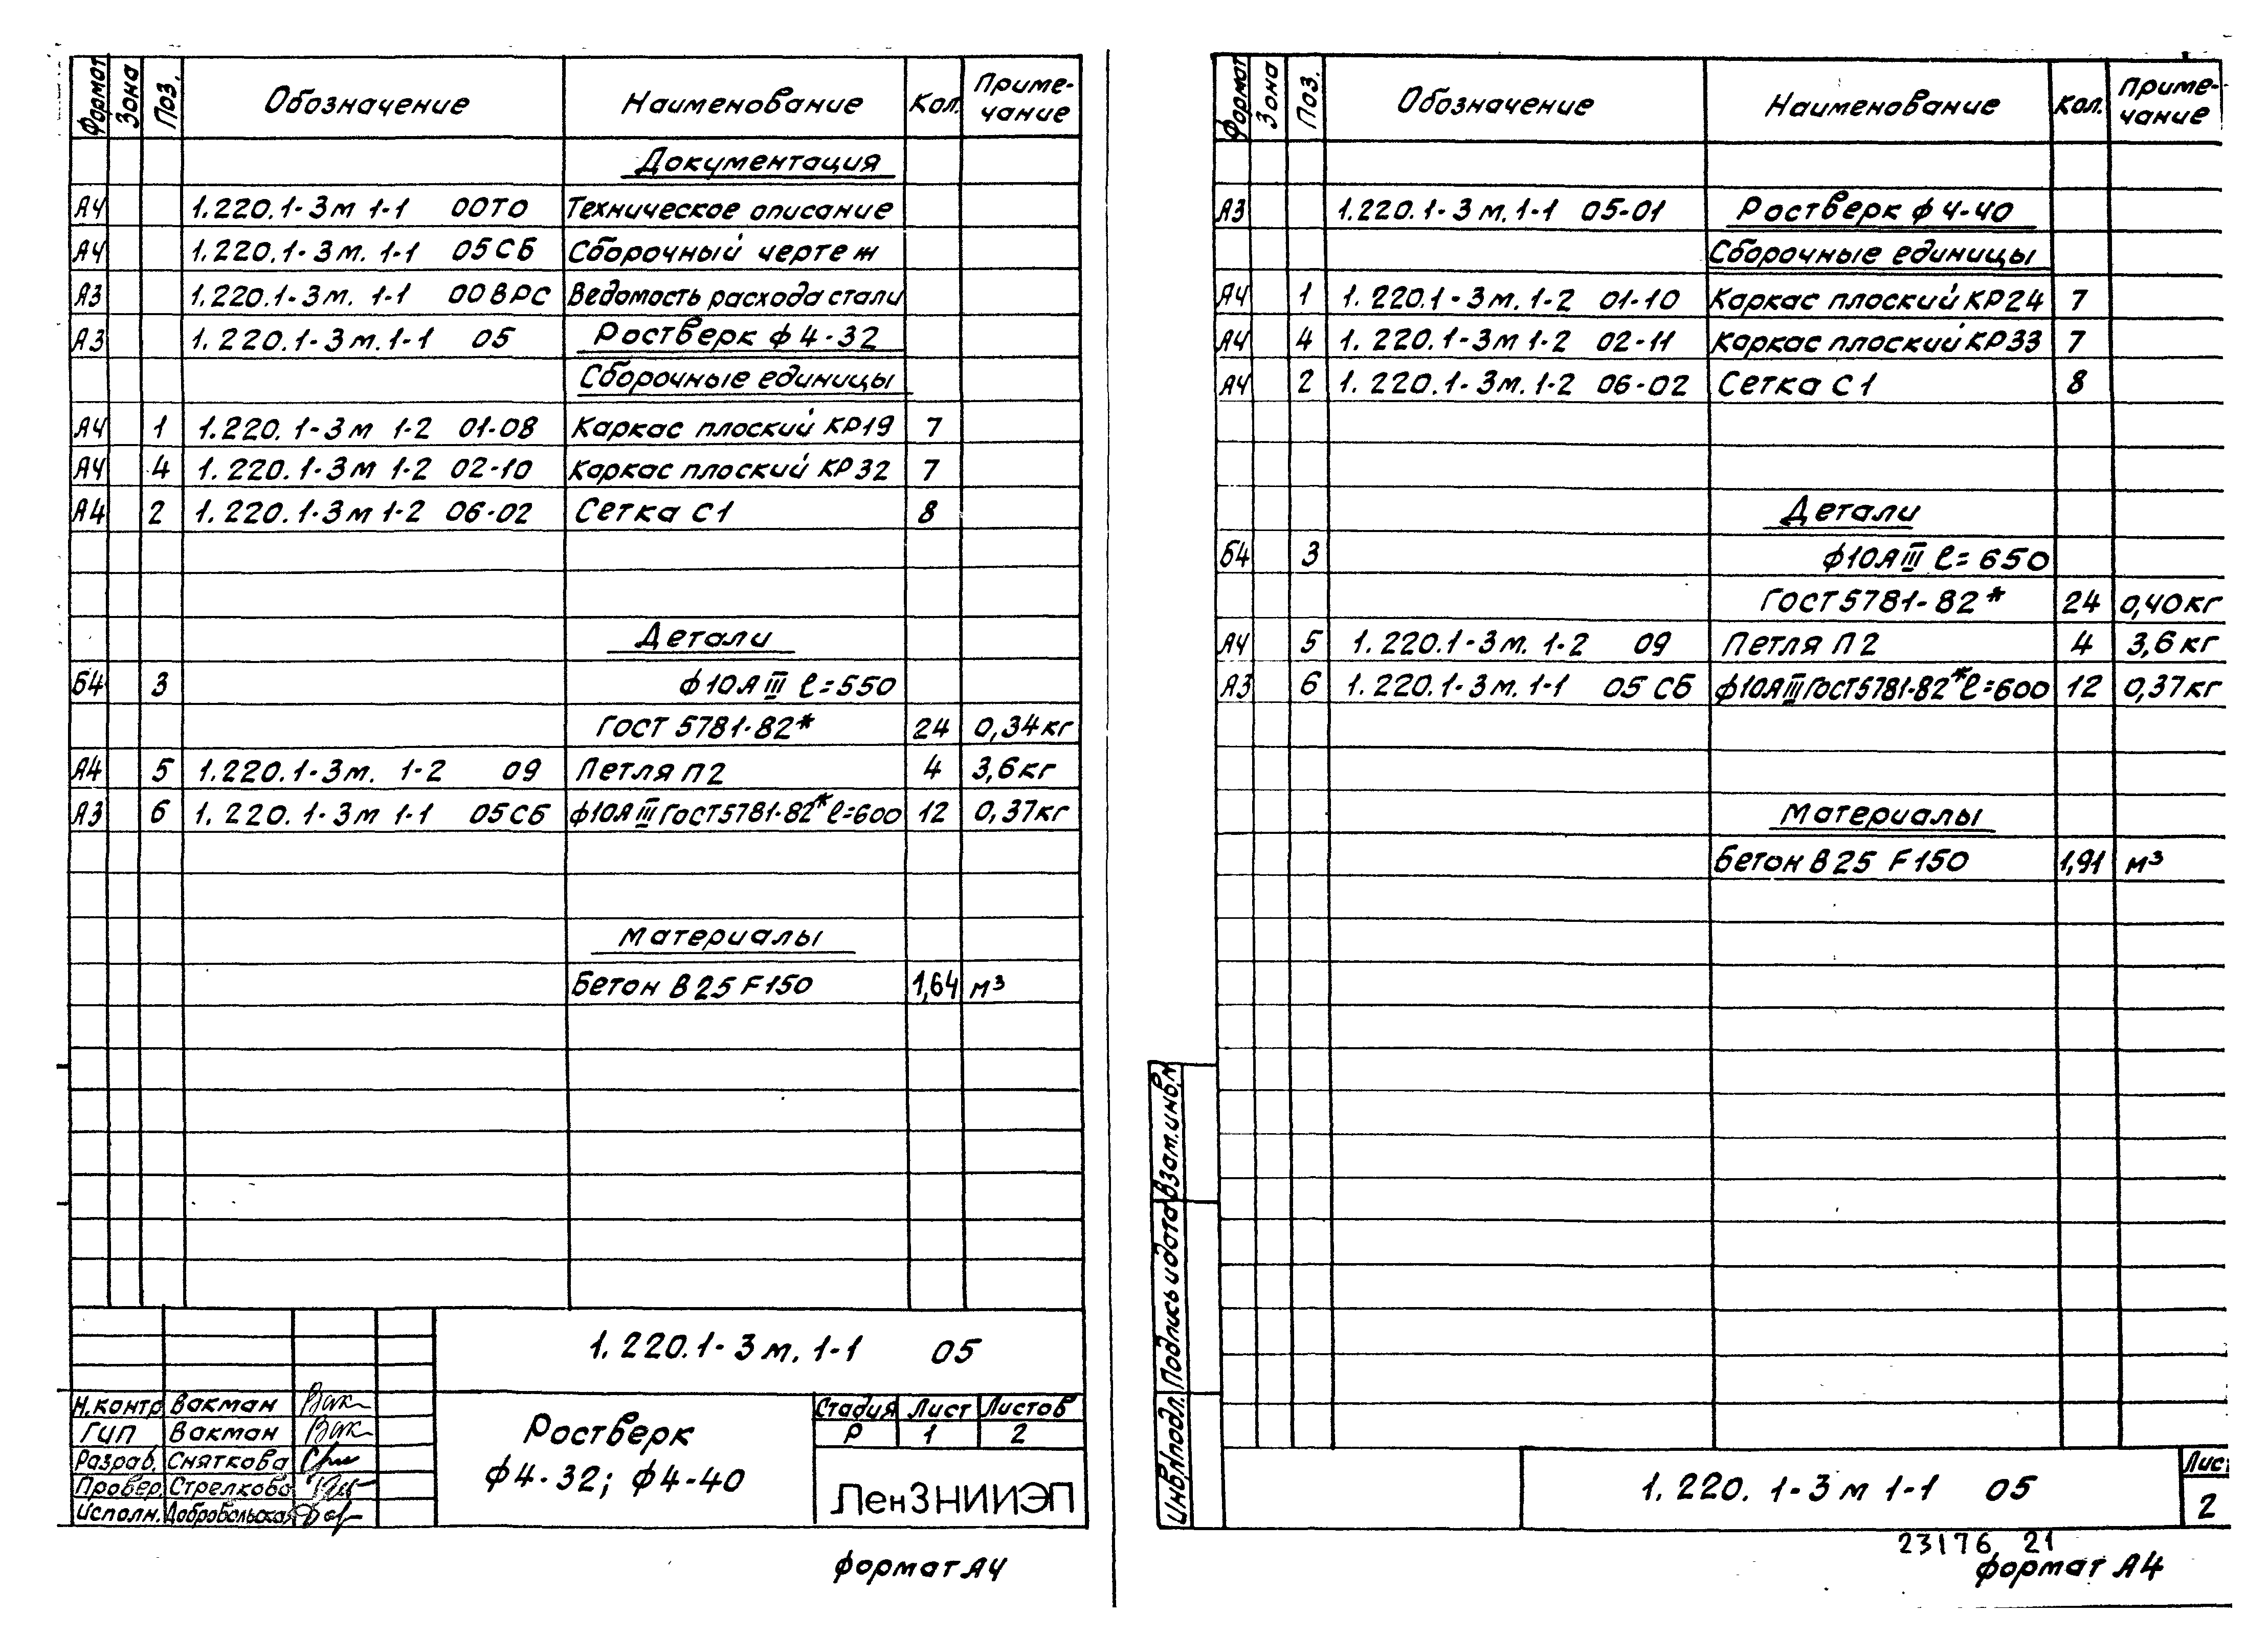 Формат Зона Поз. Обозначение Наименование Кол. Приме-
чание
Документация
А4 1.220.1-3м 1-1 00ТО Техническое описание
А4 1.220.1-3м. 1-1 05СБ Сборочный чертеж
А3 1.220.1-3м. 1-1 00ВРС Ведомость расхода стали
А3 1.220.1-3м.1-1 05 Ростверк ф4-32
Сборочные единицы
А4 1 1.220.1-3м 1-2 01-08 Каркас плоский КР19 7
А4 4 1.220.1-3м 1-2 02-10 Каркас плоский КР32 7
А4 2 1.220.1-3м 1-2 06-02 Сетка С1 8
Детали
Б4 3 ф10АIII ℓ=550
ГОСТ 5781-82* 24 0,34кг
А4 5 1.220.1-3м. 1-2 09 Петля П2 4 3,6кг
А3 6 1.220.1-3м 1-1 05СБ ф10АIII ГОСТ5781-82* ℓ=600 12 0,37кг
Материалы
Бетон В25 F150 1,64 м³
1.220.1-3м. 1-1 05
Н.контр Вакман
ГИП Вакман
Разраб. Сняткова
Провер. Стрелкова
Исполн. Добровольская
Ростверк
ф4-32; ф4-40
Стадия Лист Листов
Р 1 2
ЛенЗНИИЭП
формат А4
Формат Зона Поз. Обозначение Наименование Кол. Приме-
чание
А3 1.220.1-3м.1-1 05-01 Ростверк ф4-40
Сборочные единицы
А4 1 1.220.1-3м.1-2 01-10 Каркас плоский КР24 7
А4 4 1.220.1-3м 1-2 02-11 Каркас плоский КР33 7
А4 2 1.220.1-3м.1-2 06-02 Сетка С1 8
Детали
Б4 3 ф10АIII ℓ=650
ГОСТ5781-82* 24 0,40кг
А4 5 1.220.1-3м. 1-2 09 Петля П2 4 3,6кг
А3 6 1.220.1-3м.1-1 05СБ ф10АIII ГОСТ5781-82* ℓ=600 12 0,37кг
Материалы
Бетон В25 F150 1,91 м³
Инв.№подл. Подпись и дата Взам.инв.№
1.220.1-3м 1-1 05
Лист
2
23176 21
формат А4